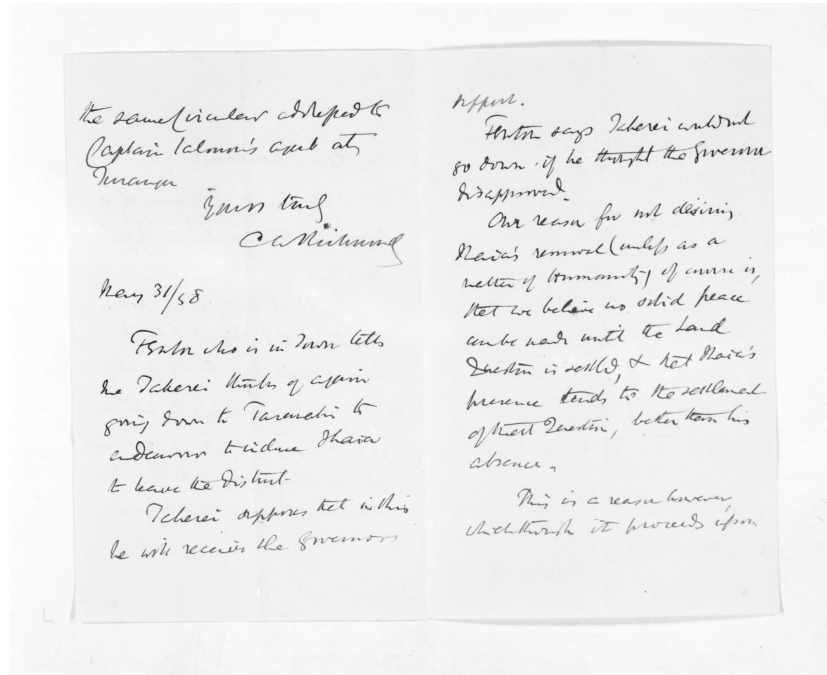 the same Circular addressed to
Captain Salmon's agent at
Turanga
Yours truly
C W Richmond
May 31/58
Fenton who is in Town tells
me Takerei thinks of again
going down to Taranaki to
endeavour to induce Ihaia
to leave the District.
Takerei supposes that in this
he will receive the Governors
support.
Fenton says Takerei would not
go down if he thought the Governor
disapproved.
Our reason for not desiring
Ihaia's removal (unless as a
matter of humanity) of course is,
that we believe no solid peace
can be made until the Land
Question is settled, & that Ihaia's
presence tends to the settlement
of that Question, better than his
absence.
This is a reason however,
which though it proceeds upon